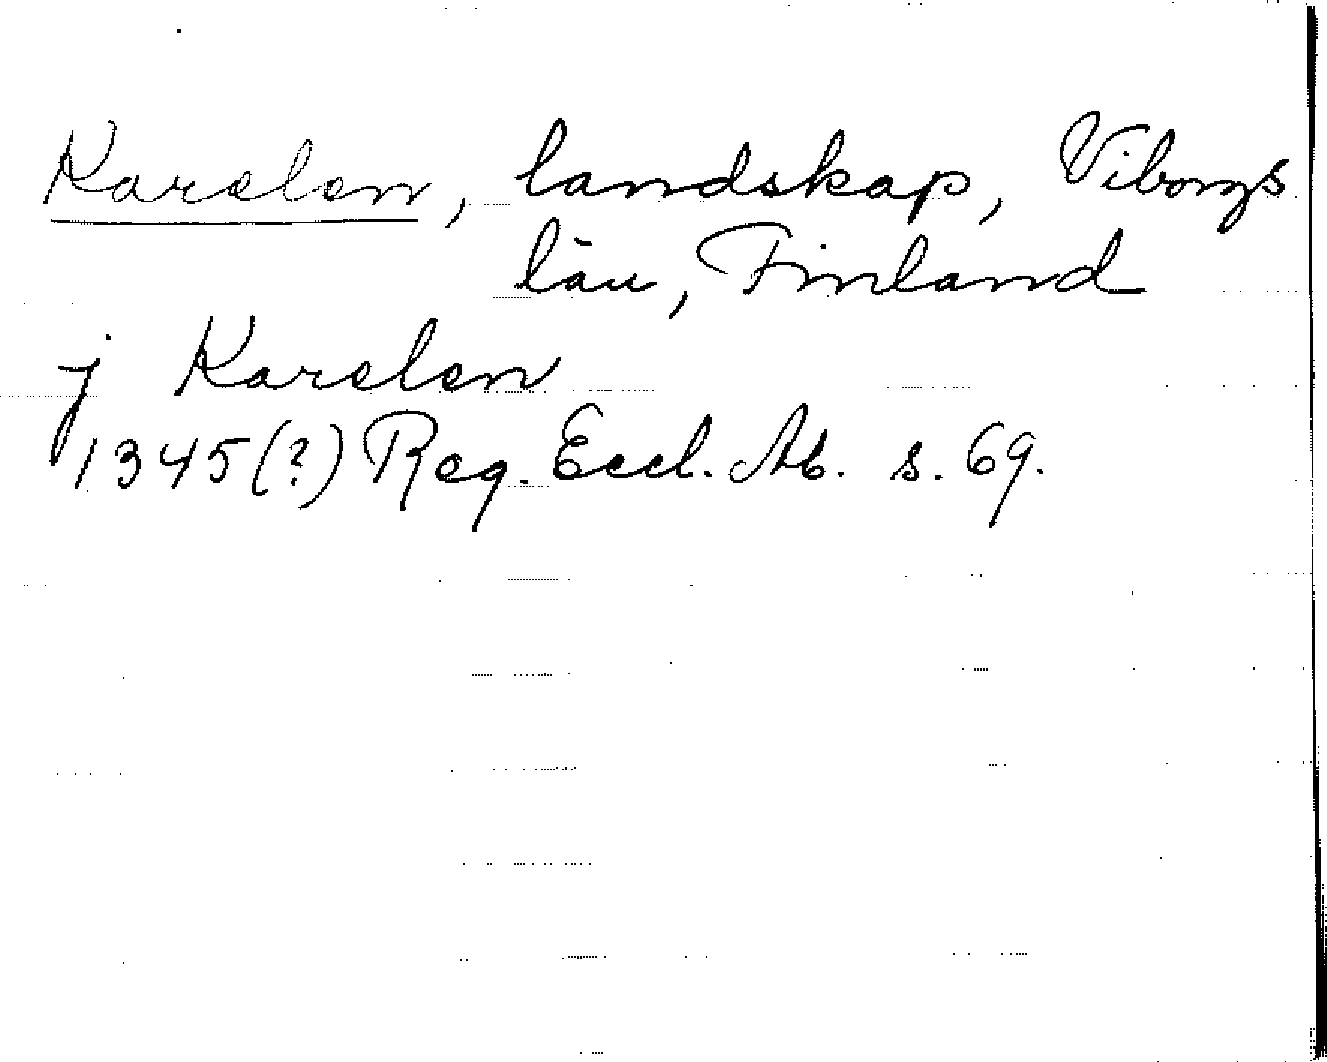 Karelen, landskap, Viborgs
län, Finland
j Karelen
1345(?) Reg. Eccl. Ab. s. 69.